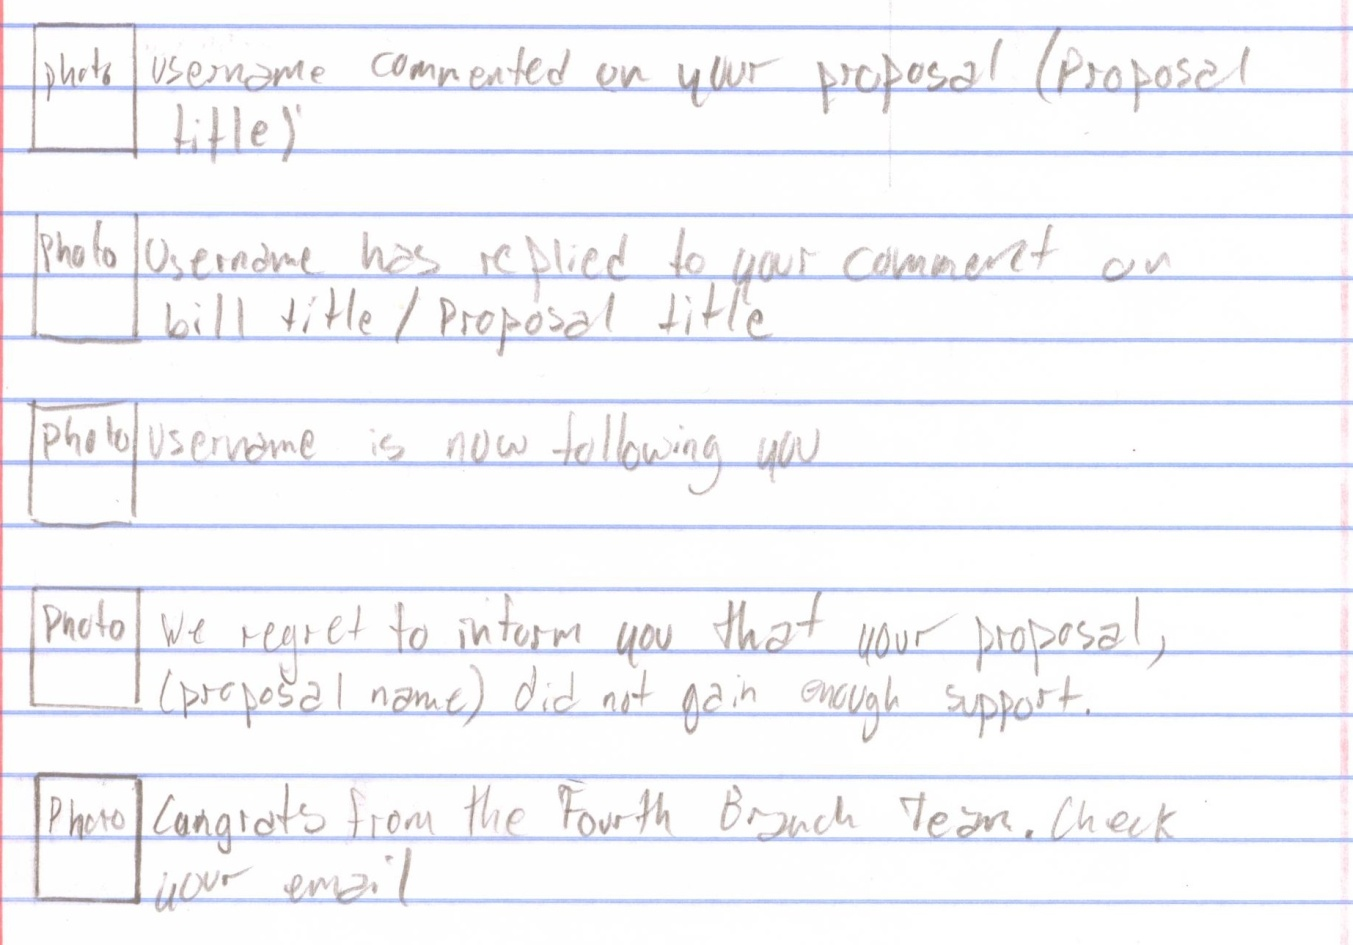 photo username commented on your proposal (Proposal
title)
Photo Username has replied to your comment on
bill title / Proposal title
photo username is now following you
Photo We regret to inform you that your proposal,
(proposal name) did not gain enough support.
Photo Congrats from the Fourth Branch Team. Check
your email